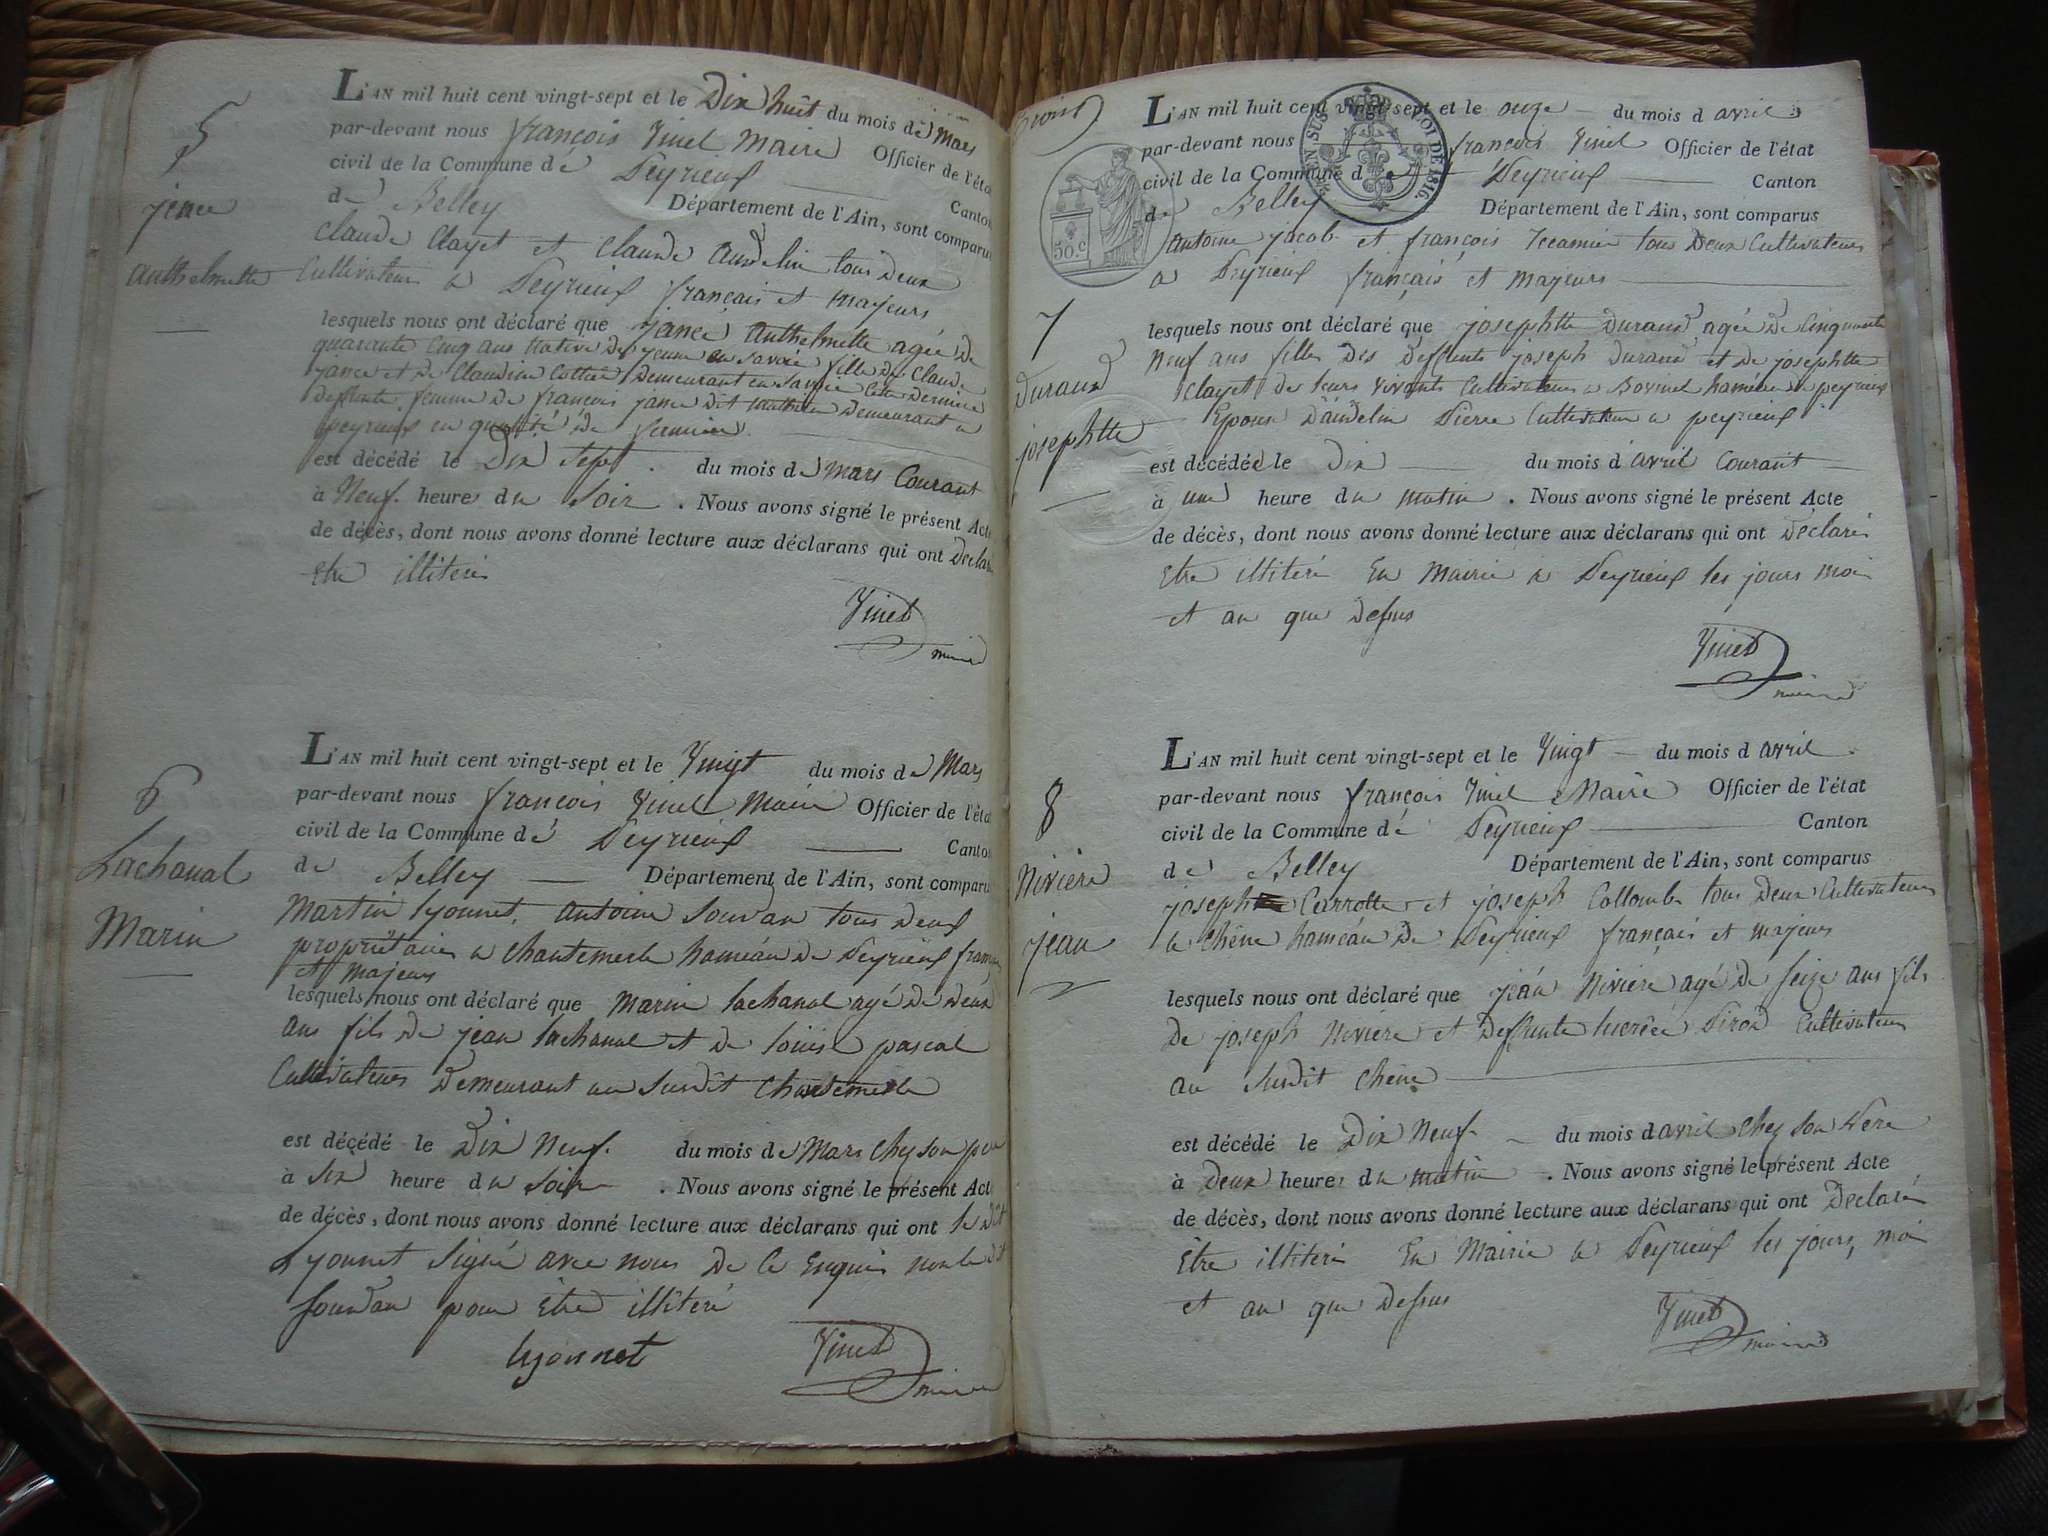 5
jance
anthelmette
L'AN mil huit cent vingt-sept et le Dix huit du mois de Mars
par-devant nous françois Vinet Maire Officier de l'éta
civil de la Commune de Peyrieux Canton
de Belley Département de l'Ain, sont comparus
Claude Clayet et Claude Audelin tous deux
Cultivateurs a Peyrieux français et majeurs
lesquels nous ont déclaré que jance anthelmette agée de
quarante Cinq ans native de en Savoie fille de Claude
jance et de Claudine Demeurant en Savoie Cette derniere
deffunte femme de françois jance dit Demeurant a
peyrieux en qualité de
est décédé le Dix Sept du mois de mars Courant
à Neuf heure du Soir . Nous avons signé le présent Acte
de décès, dont nous avons donné lecture aux déclarans qui ont Déclaré
Etre illiteré
Vinet
maire
6
Lachanal
Marin
L'AN mil huit cent vingt-sept et le Vingt du mois de Mars
par-devant nous françois Vinet Maire Officier de l'éta
civil de la Commune de Peyrieux Canton
de Belley Département de l'Ain, sont comparu
Martin lyonnet, antoine Sourdan tous deux
propriétaires a Chantemerle haméau de Peyrieux français
et majeurs
lesquels nous ont déclaré que Marin lachanal agé de deux
ans fils de jean lachanal et de louise pascal
Cultivateurs Demeurant au Susdit Chantemerle
est décédé le Dix Neuf. du mois de Mars Chez son pere
à Six heure du Soir . Nous avons signé le présent Acte
de décès, dont nous avons donné lecture aux déclarans qui ont le dit
Lyonnet Signé avec nous De Ce Enquis non le dit
Sourdan pour Etre illiteré
lyonnet
Vinet
maire
EN SUS LOI DE 1816.
50.c
L'AN mil huit cent vingt-sept et le onze du mois d avril
par-devant nous françois Vinet Officier de l'état
civil de la Commune de Peyrieux Canton
de Belley Département de l'Ain, sont comparus
antoine jacob et françois recamier tous Deux Cultivateurs
a Peyrieux français et majeurs
7
Durand
josephtte
lesquels nous ont déclaré que josephtte Durand agée De Cinquante
Neuf ans fille des Deffunte joseph Durand et de josephtte
Clayet des leurs vivants Cultivateurs a Bovinel haméau a peyrieux
Epouse D'audelin Pierre Cultivateur a peyrieux
est décédée le Dix du mois d avril Courant
à une heure du matin . Nous avons signé le présent Acte
de décès, dont nous avons donné lecture aux déclarans qui ont Déclaré
Etre illiteré En Mairie a Peyrieux les jours mois
et an que Dessus
Vinet
maire
8
Niviere
jean
L'AN mil huit cent vingt-sept et le Vingt du mois d avril
par-devant nous françois Vinet Maire Officier de l'état
civil de la Commune de Peyrieux Canton
de Belley Département de l'Ain, sont comparus
joseph Carrotte et joseph Collomb tous Deux Cultivateurs
a Chêne haméau De Peyrieux français et majeurs
lesquels nous ont déclaré que jean Niviere agé de Seize ans fils
De joseph Niviere et Deffunte lucrêce Pirod Cultivateurs
au Susdit Chêne
est décédé le Dix Neuf du mois d avril Chez son Pere
à Deux heures du matin . Nous avons signé le présent Acte
de décès, dont nous avons donné lecture aux déclarans qui ont Declaré
Etre illiteré En Mairie a Peyrieux les jours, mois
et an que Dessus
Vinet
maire